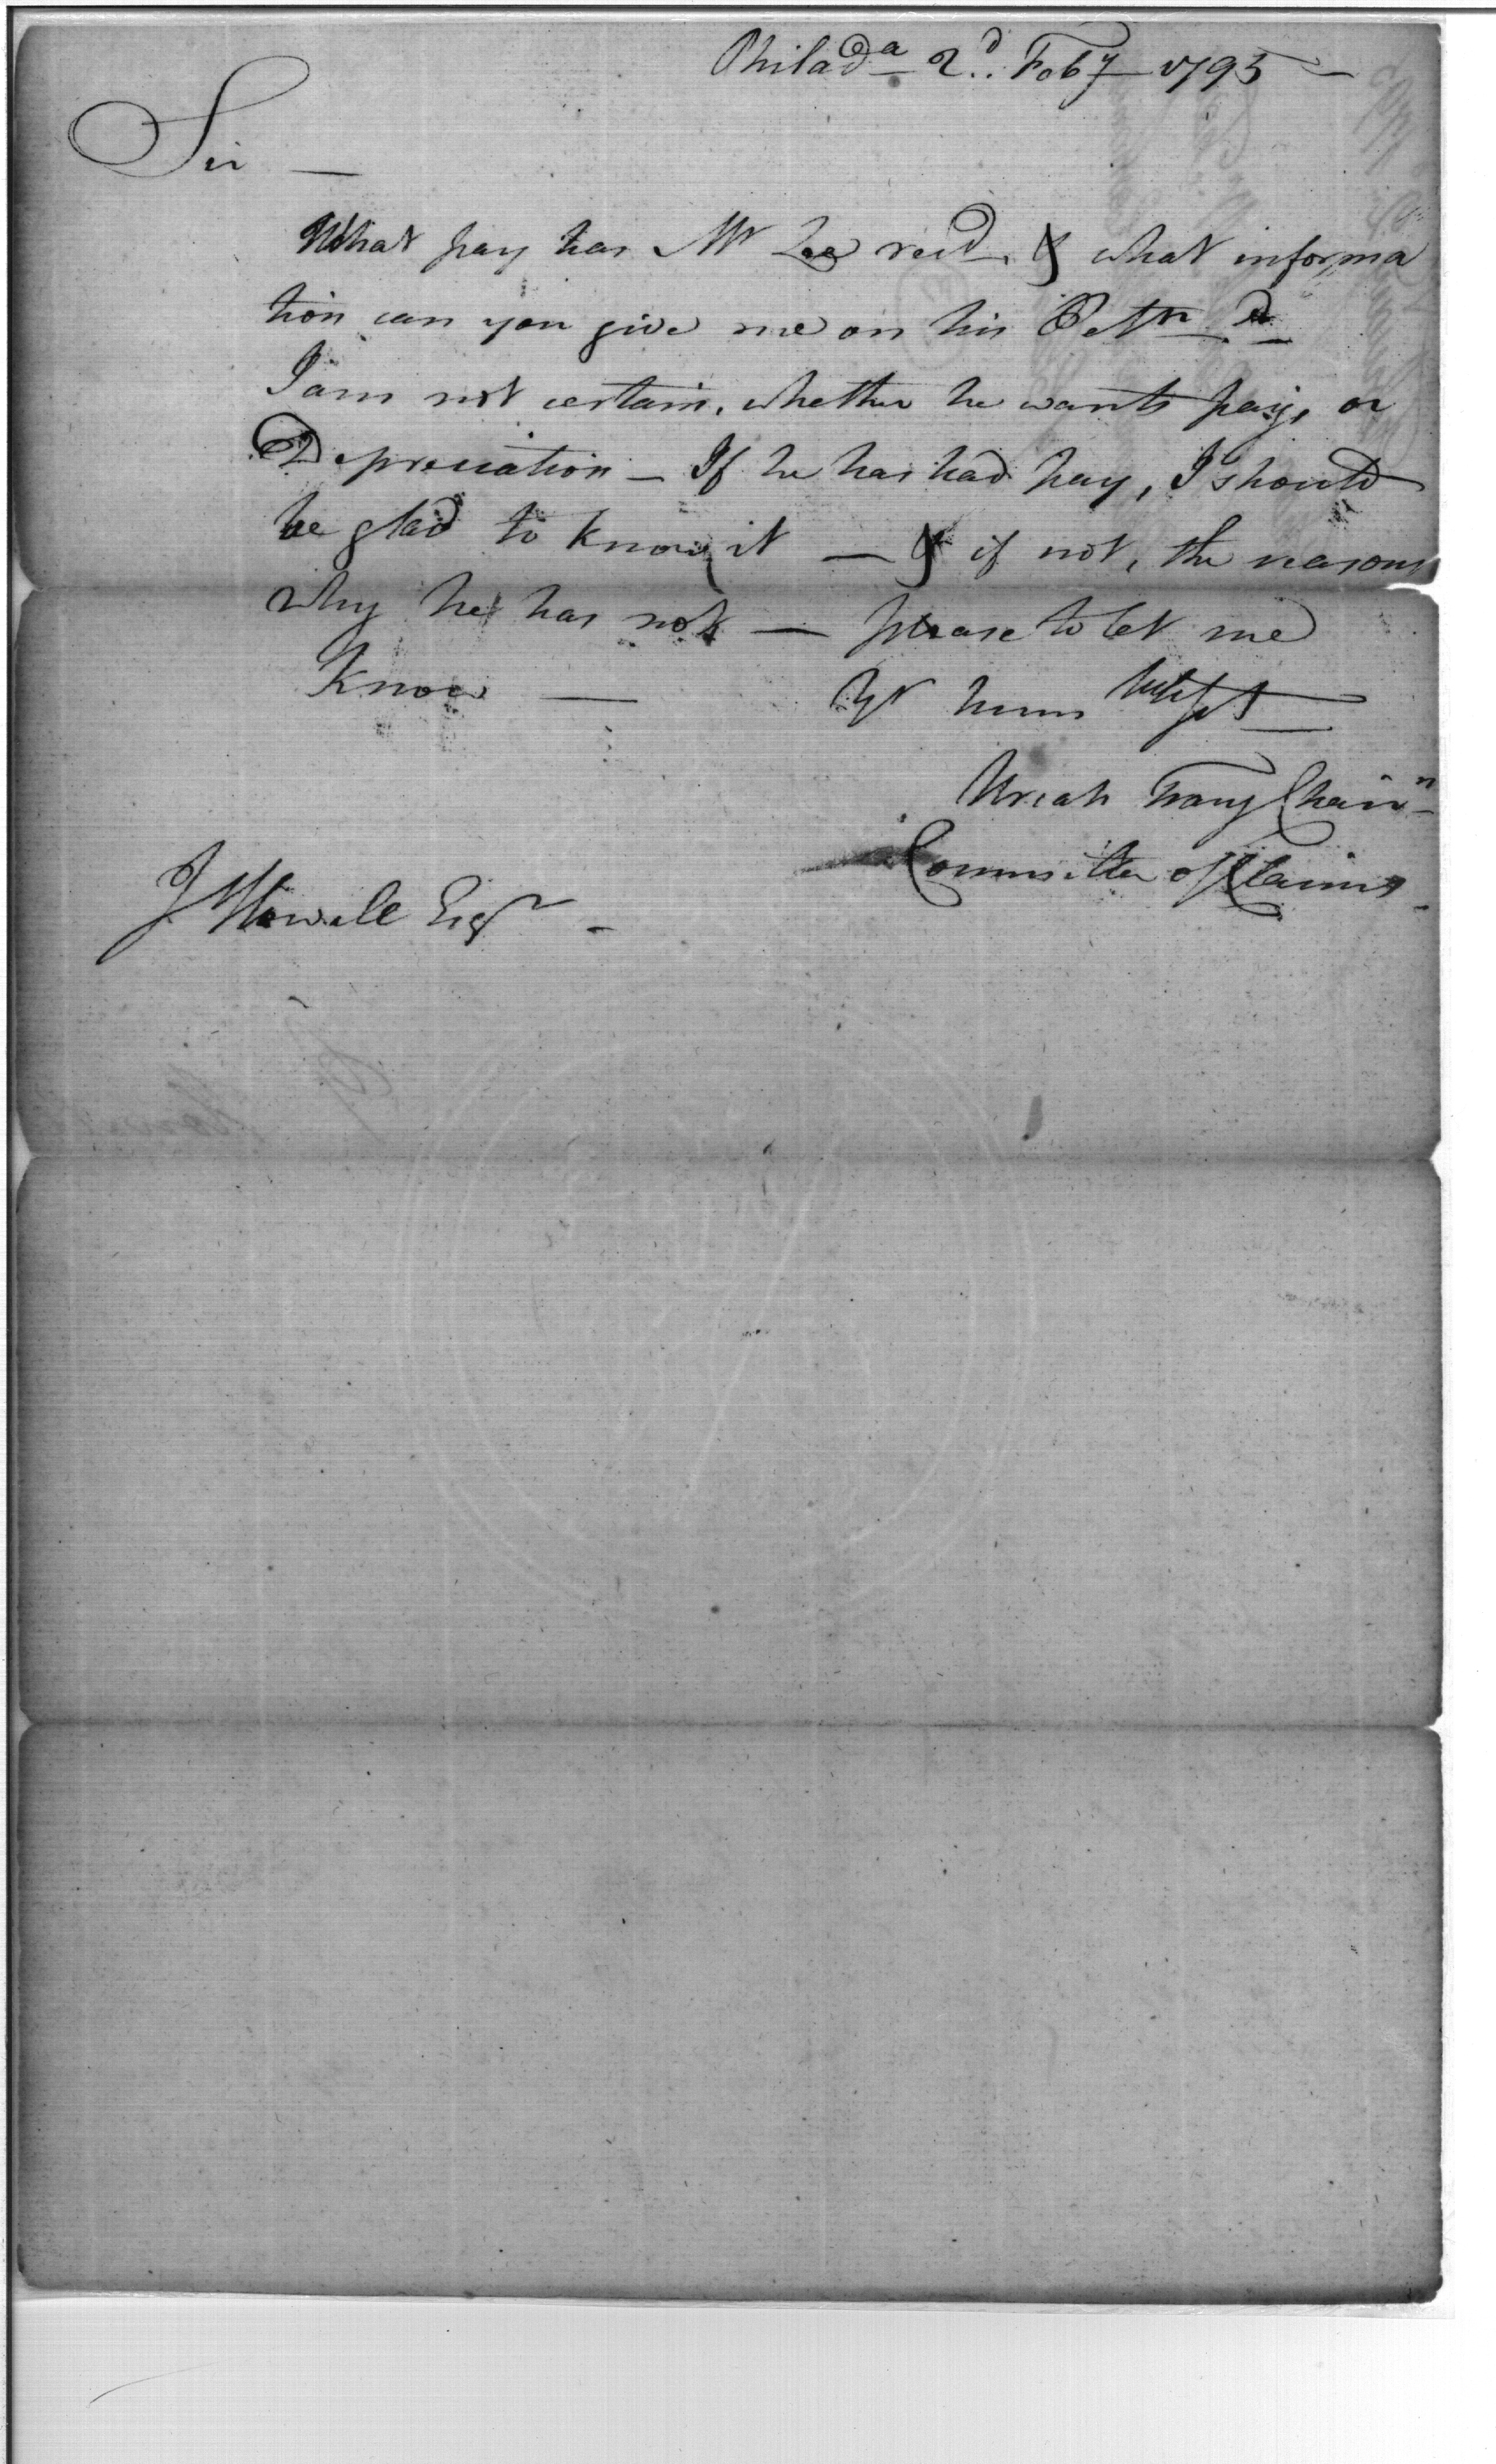 Philada 2d. Feby 1795 —
Sir —
What pay has Mr Lee recd. & what informa
tion can you give me on his Petn
I am not certain, whether he wants pay, or
Depreciation — If he has had pay, I should
be glad to know it — & if not, the reasons
why he has not — please to let me
Know —
Yr hum
Uriah Tracy Chairn
Committee of Claims
J Howell Esqr -